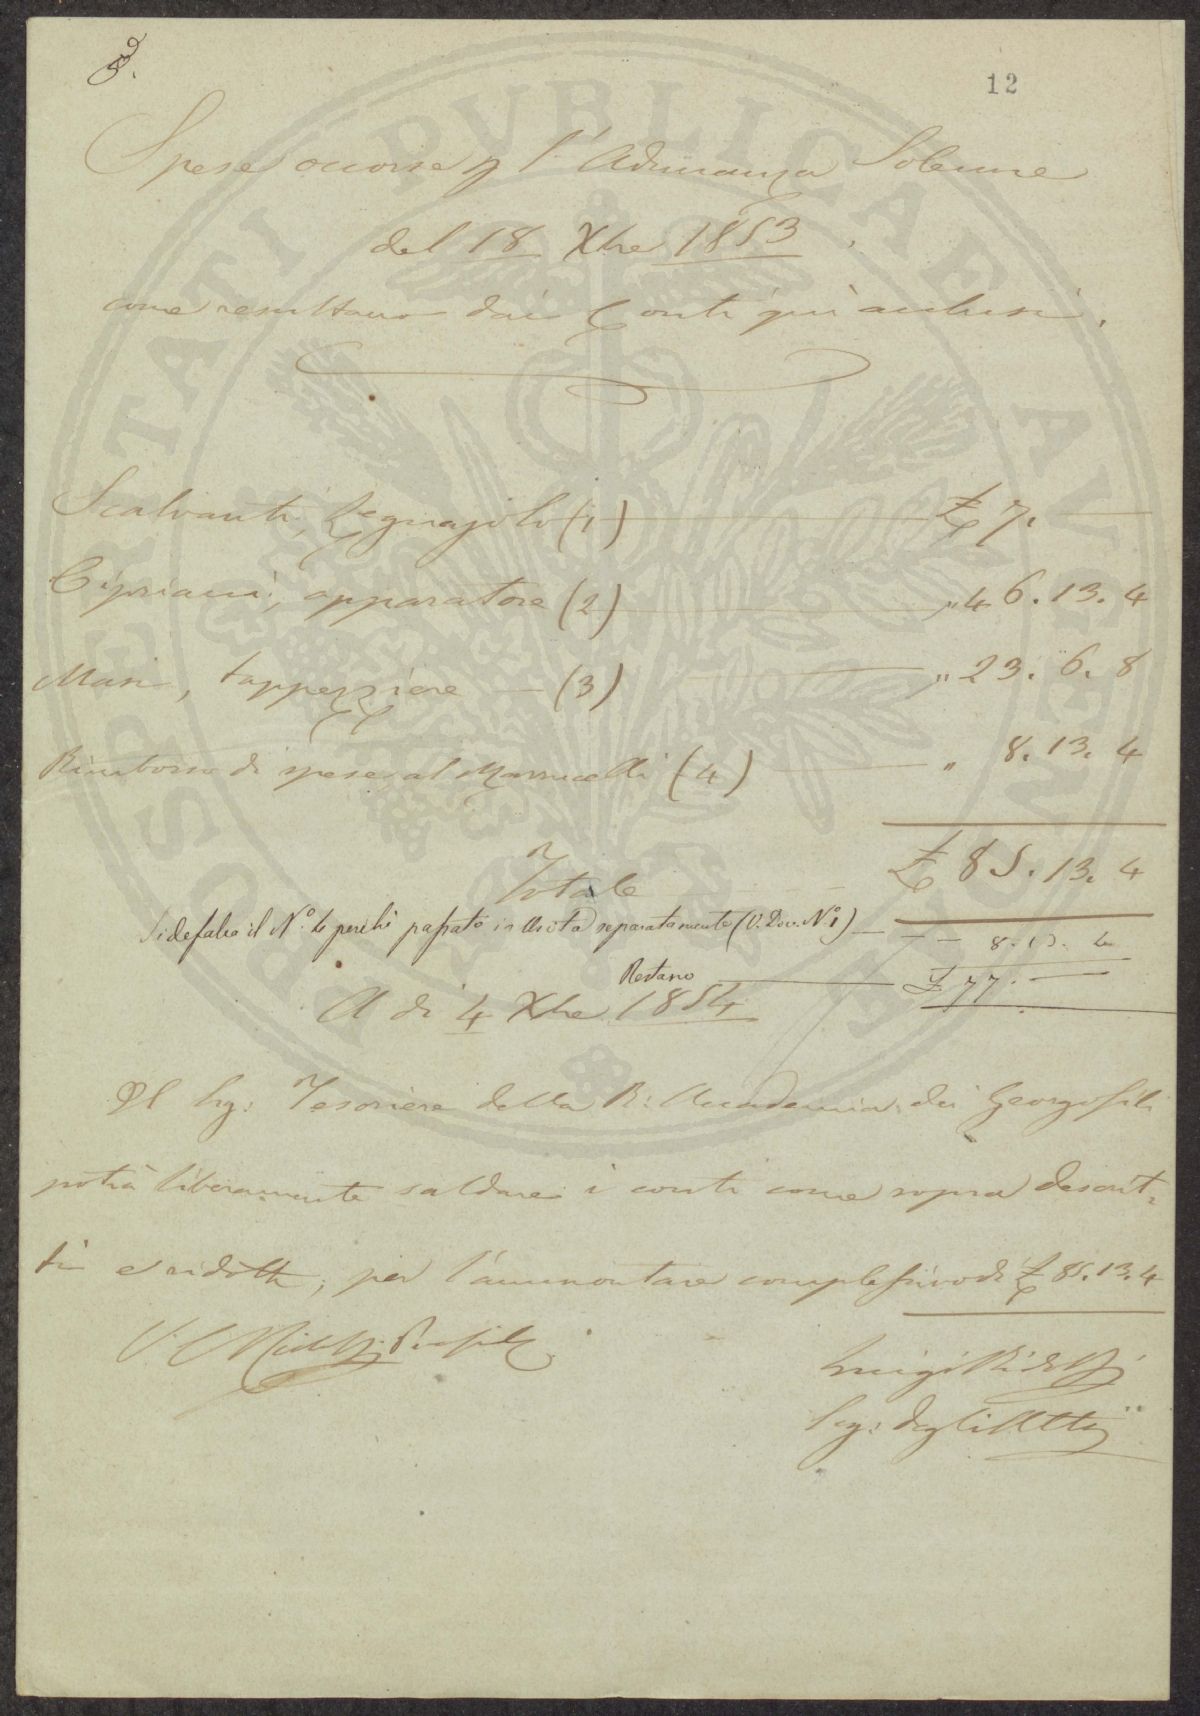 12
Spese occorse p l'Adunanza Solenne
del 18 Xbre 1853.
come resultano dai Conti qui acclusi.
Scalvanti, Legnajolo (1) £ 7. —
Cipriani, apparatore (2) „ 46. 13. 4
Masi, tappezziere — (3) „ 23. 6. 8
Rimborso di spese, al Marrucelli (4) „ 8. 13. 4
Totale £ 85. 13. 4
Si defalca il N.º 4 perchè passato in Uscita separatamente (V. Doc. N.º 1) — 8. 13. 4
Restano £ 77. —
A di 4 Xbre 1854
Il Sig: Tesoriere della R: Accademia dei Georgofili
potrà liberamente saldare i conti come sopra descrit-
ti e ridotti, per l'ammontare complessivo di £ 85. 13. 4
V. C. Ridolfi Presid.
Luigi Ridolfi
Seg: degli Atti
PROSPERITATI PVBLICAE AVGENDAE